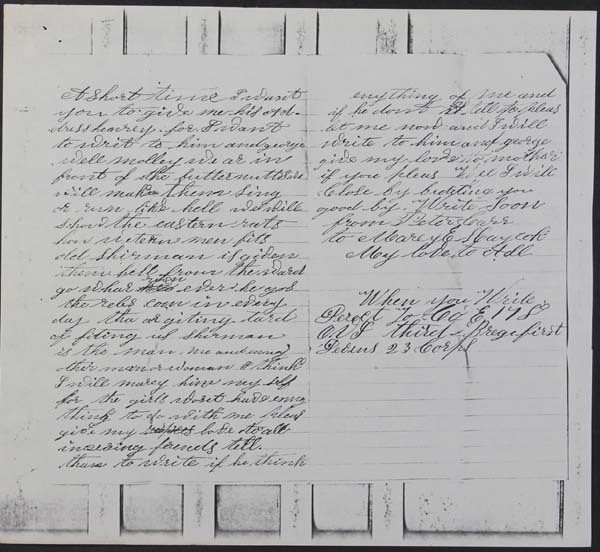 A Short time I want
you to give me his Ad-
dress henrey for I want
to writ to him and george
well molley we ar in
front of the butternutters
will make them sing
or run like hell we will
show the eastern rats
how western men fits
old shirman is giden
them hell from the word
go whar ever he gos
the rebs run in every
day tha ar giting tard
of fiting us shirman
is the man me and enny
other man or woman I think
I will marey him my self
for the girls wont have enny
thing to do with me pleas
give my love to all
inquiring friends tell
them to write if he think
enything of me and
if he dont tell to pleas
let me now and I will
write to him and george
give my love to mother
if you pleas Well I will
Close by bidding you
good by Write Soon
from Peter
to Marey E Haycok
My love to All
When you Write
Derect To Co E 178
O V I third Bregi first
Devisns 23 Corps